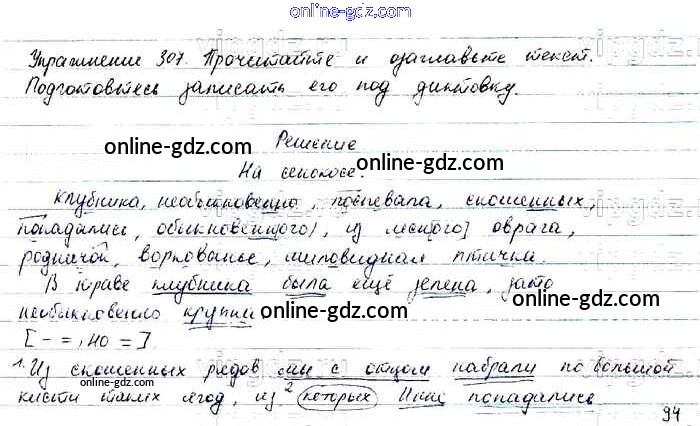 online-gdz.com
Упражнение 307. Прочитайте и озаглавьте текст.
Подготовьтесь записать его под диктовку.
Решение
online-gdz.com
online-gdz.com
На сенокосе.
Клубника, необыкновенно, поспевала, скошенных,
попадались, обыкновенного), из лесного] оврага,
online-gdz.com
online-gdz.com
родничок, воркованье, миловидная птичка.
В траве клубника была ещё зелена, зато
необыкновенно крупна
online-gdz.com
online-gdz.com
[ - = , но = ].
1. Из скошенных рядов мы с отцом набрали по большой
online-gdz.com
кисти таких ягод, из 2 которых иные попадались
online-gdz.com
94